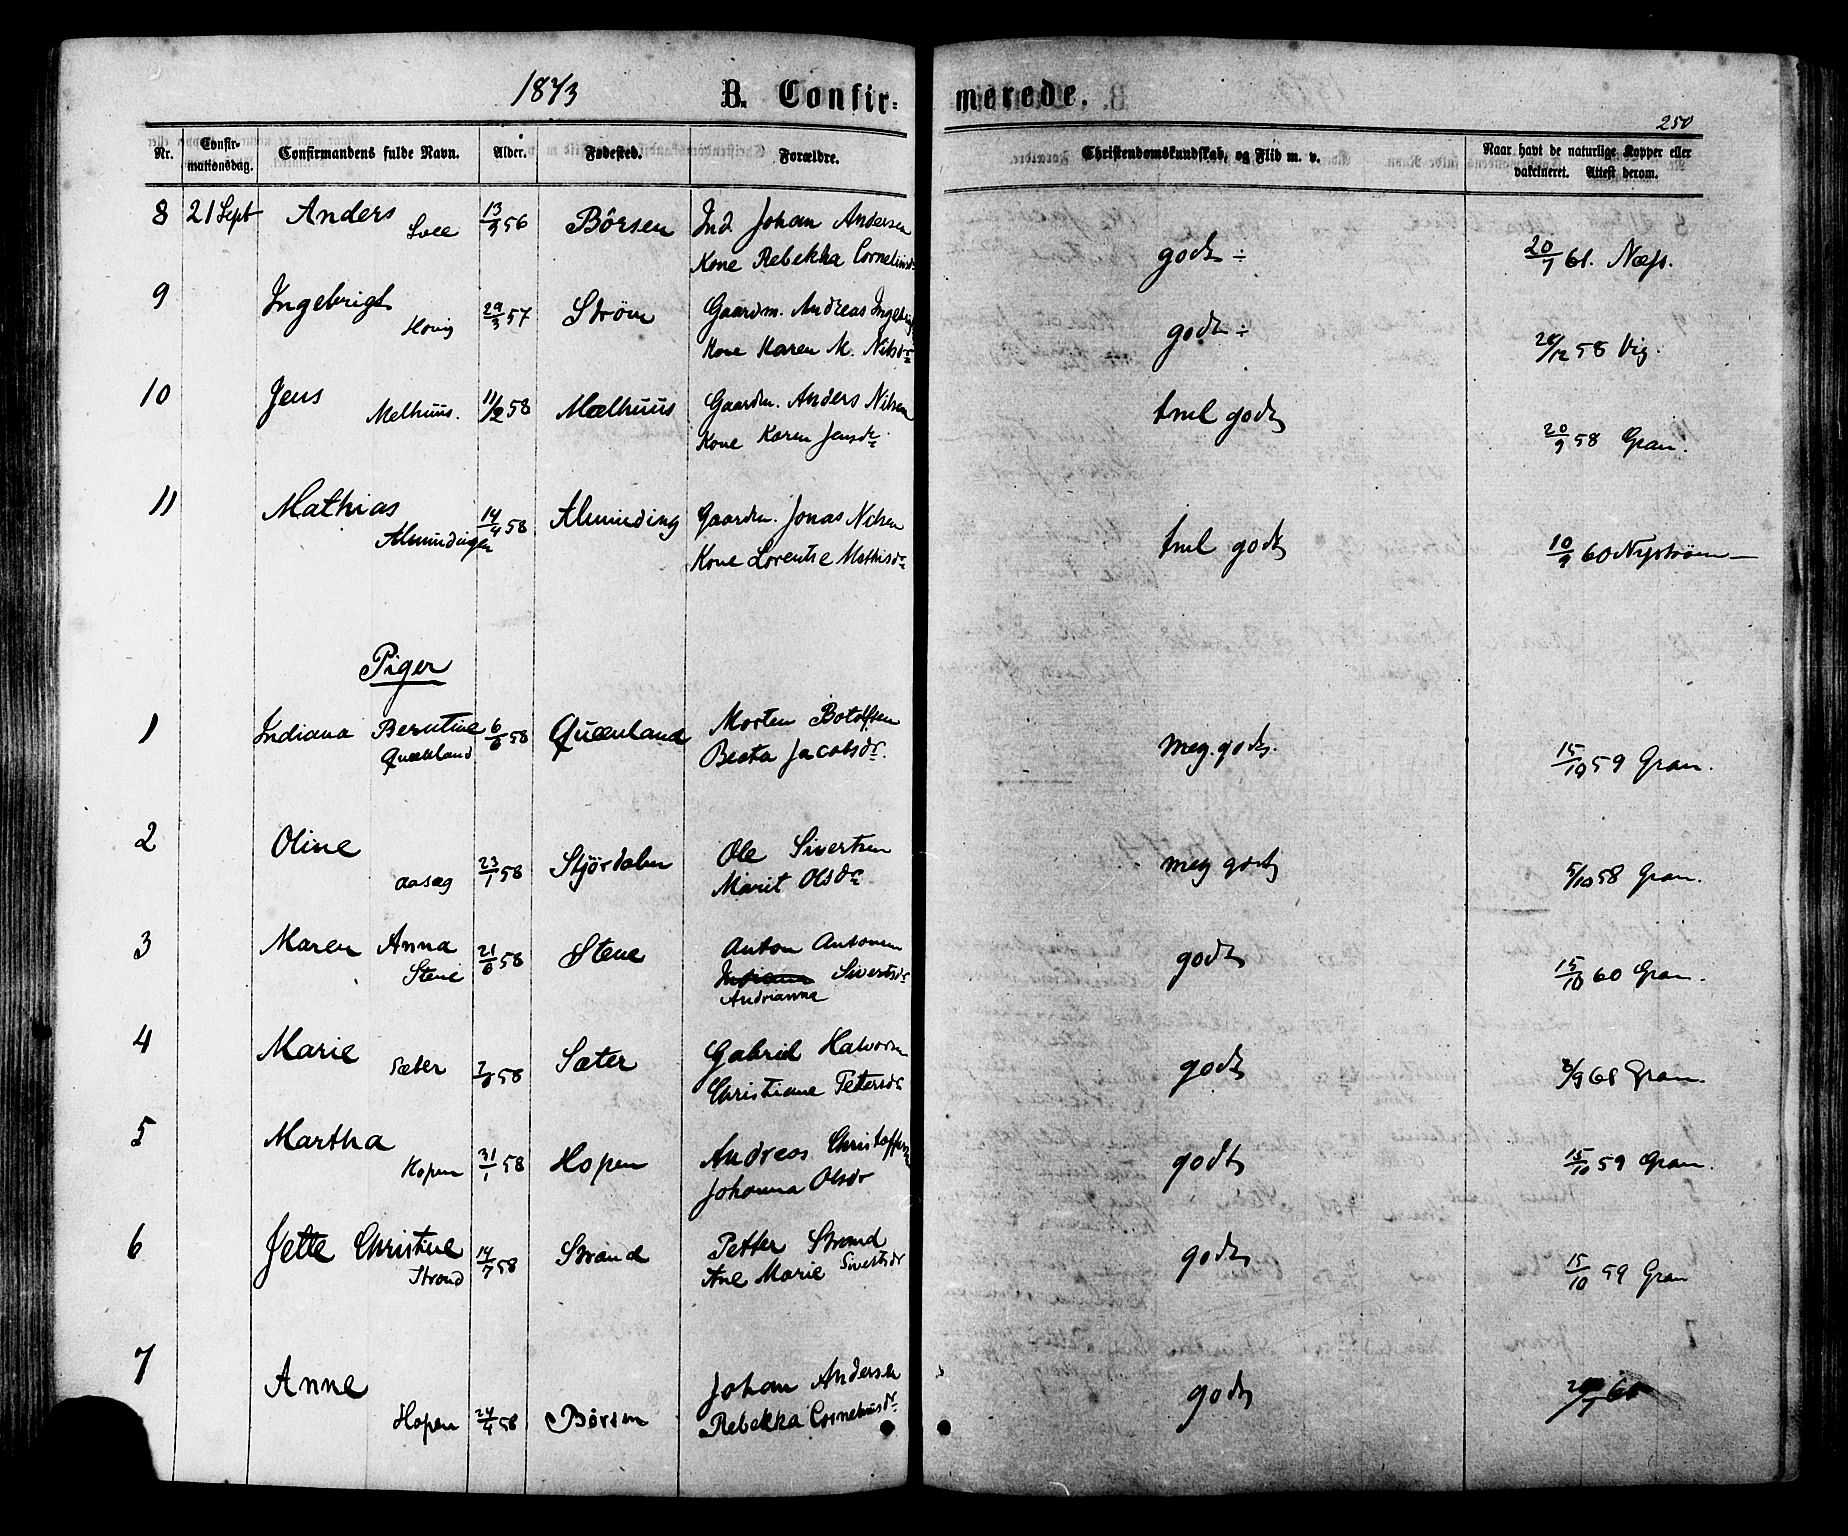 1873 B. Confirmerede.
250
Nr. Confirmationsdag. Confirmandens fulde Navn. Alder. Fødested. Forældre. Christendomskundskab, og Flid m. v. Naar havt de naturlige Kopper eller vakcineret. Attest derom.
8 21 Sept Anders 13/9 56 Børsen Ind Johan Andersen
Kone Rebekka Corneliusdr godt ÷ 20/7 61. Næss.
9 Ingebrigt Hovig 29/3 57 Strøm Gaardm. Andreas Ingebrigts
Kone Karen M. Nilsdr godt ÷ /12 58 Vig.
10 Jens Melhuus. 11/2 58 Mælhuus Gaardm. Anders Nilsen
Kone Karen Jensdr tml godt 20/9 58 Gran.
11 Mathias Almindingen 14/4 58 Alminding Gaardm. Jonas Nilsen
Kone Lorentse Mathisdr tml godt 10/9 60 Nystrøm
Piger
1 Indiana Berntine Quænland 6/6 58 Quænland Morten Botolfsen
Beata Jacobsdr. meg. godt. 15/10 59 Gran.
2 Oline Aasæg 23/1 58 Stjørdalen Ole Sivertsen
Marit Olsdr meg godt 5/10 58 Gran.
3 Maren Anna Stene 21/6 58 Stene Anton Antonsen
Sivertsdr
Andrianna godt 15/10 60 Gran.
4 Marie Sæter 58 Sæter Gabriel Halvorsen
Christiane Pettersdr godt /9 61 Gran.
5 Martha Hopen 31/1 58 Hopen Andreas Christoffersen
Johanna Olsdr godt 15/10 59 Gran.
6 Jette Christine Strand 14/7 58 Strand Petter Strand
Ane Marie Sivertsdr godt 15/10 59 Gran
7 Anne Hopen 24/4 58 Børsen Johan Andersen
Rebekka Corneliusdr godt 60